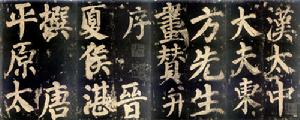 漢太中
大夫東
方先生
畫贊并
序
晉
夏侯湛
撰
唐
平原太